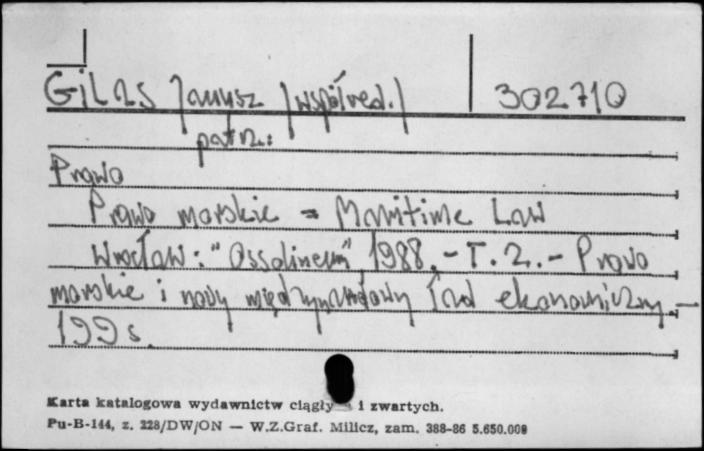 GiLAS Janusz /współred./ 302710
patrz:
Prawo
Prawo morskie = Maritime Law
Wrocław: "Ossolineum", 1988. - T. 2. - Prawo
morskie i nowy międzynarodowy ład ekonomiczny. -
199 s.
Karta katalogowa wydawnictw ciągły i zwartych.
Pu-B-144, z. 228/DW/ON — W.Z.Graf. Milicz, zam. 388-86 5.650.000